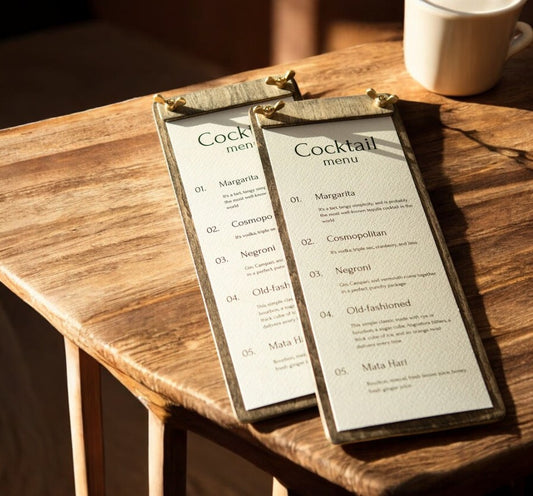 Cockt
men
01. Margarita
It's a tart, tangy simpli
the most well-know
world
02. Cosmopo
It's vodka, triple se
03. Negroni
Gin, Campari, and
in a perfect
04. Old-fash
This simple classic
bourbon, a
thick cube of
delivers every
05. Mata H
Bourbon,
fresh ginger
Cocktail
menu
01. Margarita
It's a tart, tangy simplicity, and is probably
the most well-known tequila cocktail in the
world
02. Cosmopolitan
It's vodka, triple sec, cranberry, and lime
03. Negroni
Gin, Campari, and vermouth come together
in a perfect punchy package
04. Old-fashioned
This simple classic made with rye or
bourbon, a sugar cube, Angostura bitters, a
thick cube of ice, and an orange twist
delivers every time
05. Mata Hari
Bourbon, special fresh lemon juice, honey,
fresh ginger juice